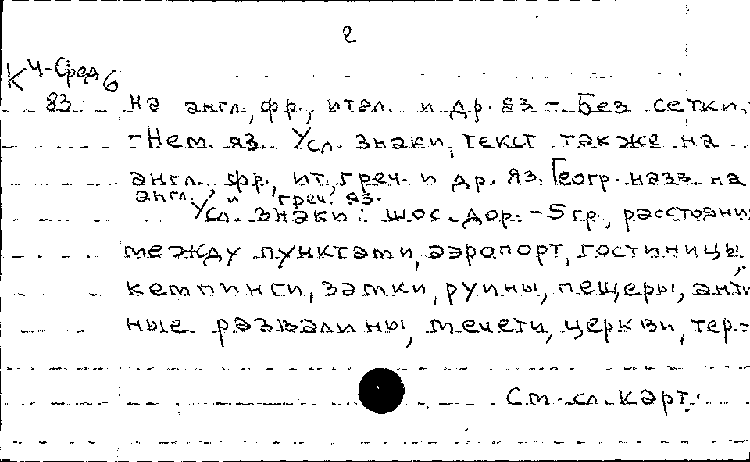 2
К4-Сред 6
83 на англ., фр., итал. и др. яз. - Без сетки.
- Нем. яз. Усл. знаки, текст также на
англ., фр., ит., греч. и др. яз. Геогр. назв. на
англ. и греч. яз.
Усл. знаки: шос. дор. - 5 гр., расстояни
между пунктами, аэрапорт, гостиницы,
кемпинги, замки, руины, пещеры, анти
ные развалины, мечети, церкви, тер-
См. сл. карт.